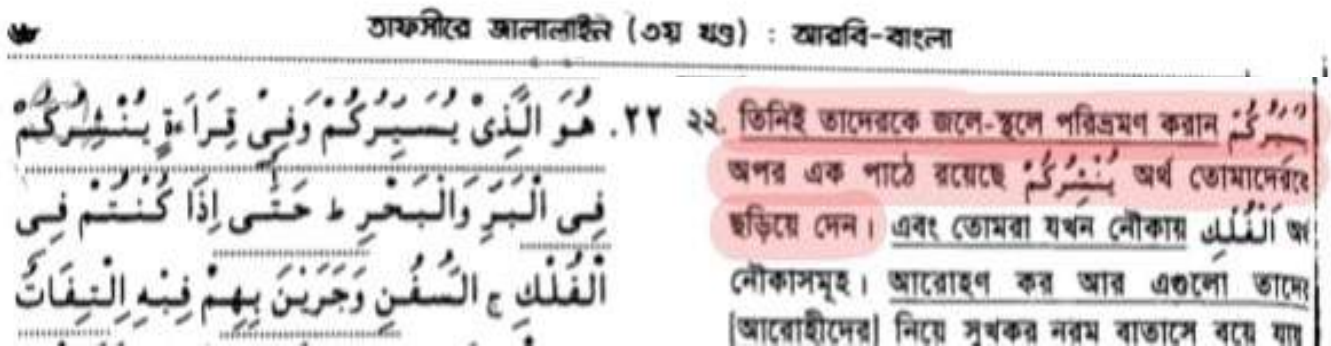 তাফসীরে জালালাইন (৩য় খণ্ড) : আরবি-বাংলা
٢٢. هُوَ الَّذِىْ يُسَيِّرُكُمْ وَفِىْ قِرَاءَةٍ يَنْشُرُكُمْ
فِى الْبَرِّ وَالْبَحْرِ ط حَتّٰى إِذَا كُنْتُمْ فِى
الْفُلْكِ ج السُّفُنِ وَجَرَيْنَ بِهِمْ فِيْهِ اِلْتِفَاتٌ
২২. তিনিই তাদেরকে জলে-স্থলে পরিভ্রমণ করান يُسَيِّرُكُمْ
অপর এক পাঠে রয়েছে يَنْشُرُكُمْ অর্থ তোমাদেরকে
ছড়িয়ে দেন। এবং তোমরা যখন নৌকায় اَلْفُلْكِ
নৌকাসমূহ। আরোহণ কর আর এগুলো
[আরোহীদের] নিয়ে সুখকর নরম বাতাসে বয়ে যায়